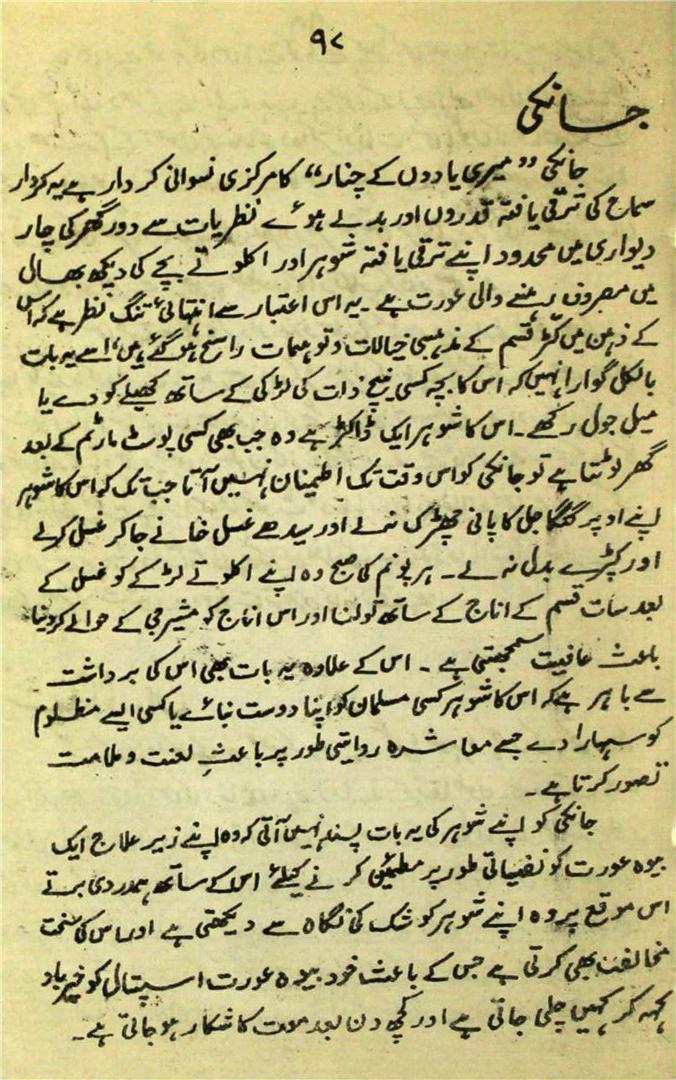 ۹۷
جانکی
جانکی ”میری یادوں کے چنار“ کا مرکزی نسوانی کردار ہے یہ کردار
سماج کی ترقی یافتہ قدروں اور بدلے ہوئے نظریات سے دور گھر کی چار
دیواری میں محدود اپنے ترقی یافتہ شوہر اور اکلوتے بچے کی دیکھ بھال
میں مصروف رہنے والی عورت ہے ۔ یہ اس اعتبار سے انتہائی تنگ نظر ہے کہ اس
کے ذہن میں کٹر قسم کے مذہبی خیالات و توہمات راسخ ہو گئے ہیں، اسے یہ بات
بالکل گوارا نہیں کہ اس کا بچہ کسی نیچ ذات کی لڑکی کے ساتھ کھیلے کودے یا
میل جول رکھے ۔ اس کا شوہر ایک ڈاکٹر ہے وہ جب بھی کسی پوسٹ مارٹم کے بعد
گھر لوٹتا ہے تو جانکی کو اس وقت تک اطمینان نہیں آتا جب تک کہ اس کا شوہر
اپنے اوپر گنگا جل کا پانی چھڑک نہ لے اور سیدھے غسل خانے جا کر غسل کرلے
اور کپڑے بدل نہ لے ۔ ہر پونم کی صبح وہ اپنے اکلوتے لڑکے کو غسل کے
بعد سات قسم کے اناج کے ساتھ تولنا اور اس اناج کو مشیر جی کے حوالے کردینا
باعث عافیت سمجھتی ہے ۔ اس کے علاوہ یہ بات بھی اس کی برداشت
سے باہر ہے کہ اس کا شوہر کسی مسلمان کو اپنا دوست بنائے یا کسی ایسے مظلوم
کو سہارا دے جسے معاشرہ روایتی طور پر باعثِ لعنت و ملامت
تصور کرتا ہے ۔
جانکی کو اپنے شوہر کی یہ بات پسند نہیں آتی کہ وہ اپنے زیر علاج ایک
بیوہ عورت کو نفسیاتی طور پر مطمئن کرنے کیلئے اس کے ساتھ ہمدردی برتے
اس موقع پر وہ اپنے شوہر کو شک کی نگاہ سے دیکھتی ہے اور اس کی سخت
مخالفت بھی کرتی ہے جس کے باعث خود بیوہ عورت اسپتال کو خیرباد
کہہ کر کہیں چلی جاتی ہے اور کچھ دن بعد موت کا شکار ہو جاتی ہے ۔